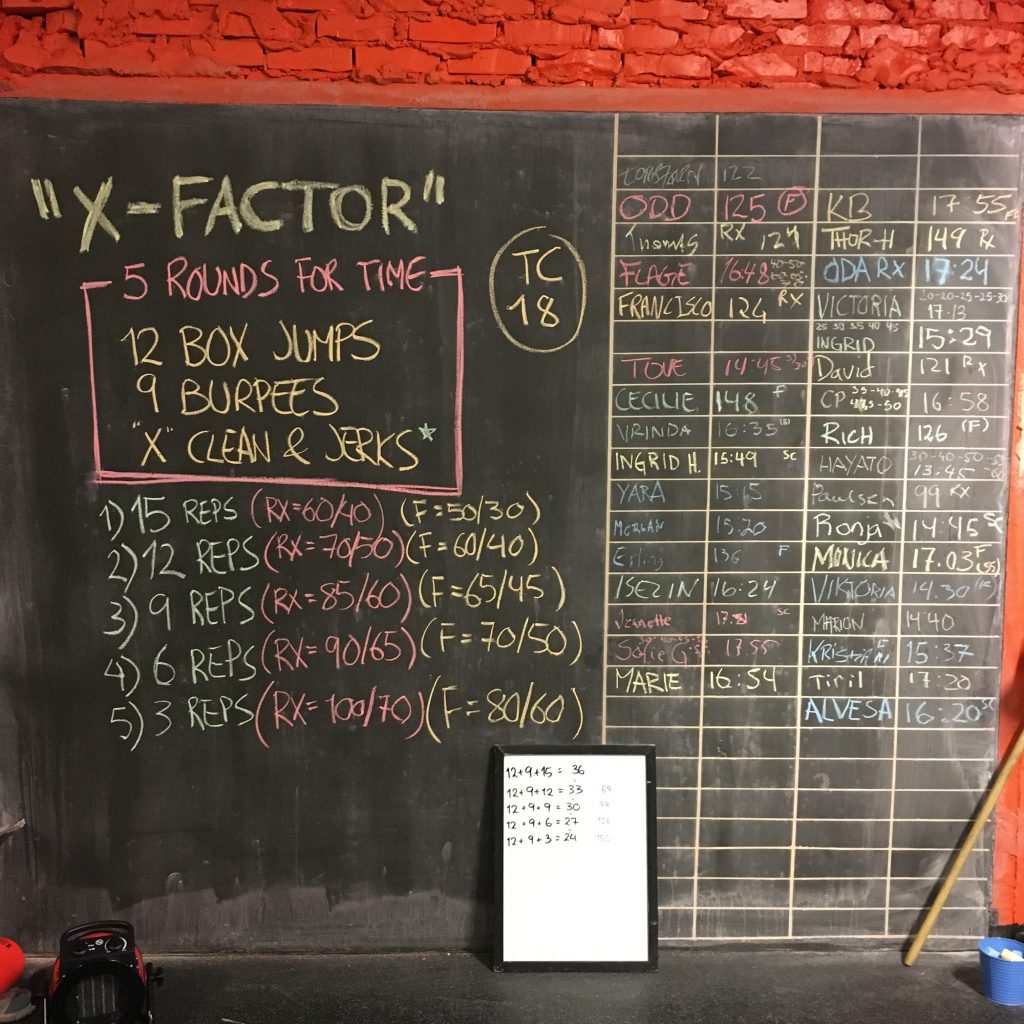 "X-FACTOR"
5 ROUNDS FOR TIME
12 BOX JUMPS
9 BURPEES
"X" CLEAN & JERKS*
TC
18
1) 15 REPS (RX=60/40) (F=50/30)
2) 12 REPS (RX=70/50) (F=60/40)
3) 9 REPS (RX=85/60) (F=65/45)
4) 6 REPS (RX=90/65) (F=70/50)
5) 3 REPS (RX=100/70) (F=80/60)
122
ODD 125 F KB 17 55
Thomas RX 124 THOR-H 149 Rx
FLAGE 16:48 ODA RX 17:24
FRANCISCO 124 RX VICTORIA 20-20-25-25-30 17.13
25 30 35 40 45 INGRID 15:29
TOVE 14:45 David 121 Rx
CECILIE 148 F CP 35-40-45 47,5-50 16:58
VRINDA 16:35 RICH 126 (F)
INGRID H. 15:49 SC HAYATO 30-40-50 13.45
YARA 15 15 Paulsen 99 RX
MORGAN 15.20 Ronja 14:45 SC
Erling 136 F MONICA 17.03 F (55)
ISEZIN 16:24 VIKTORIA 14.30
Jeanette 17:51 SC MARION 14 40
Sofie G 17.55 Kristin 15:37
MARIE 16:54 Tiril 17:20
ALVESA 16:20 SC
12+9+15 = 36
12+9+12 = 33 69
12+9+9 = 30 99
12+9+6 = 27 126
12+9+3 = 24 150